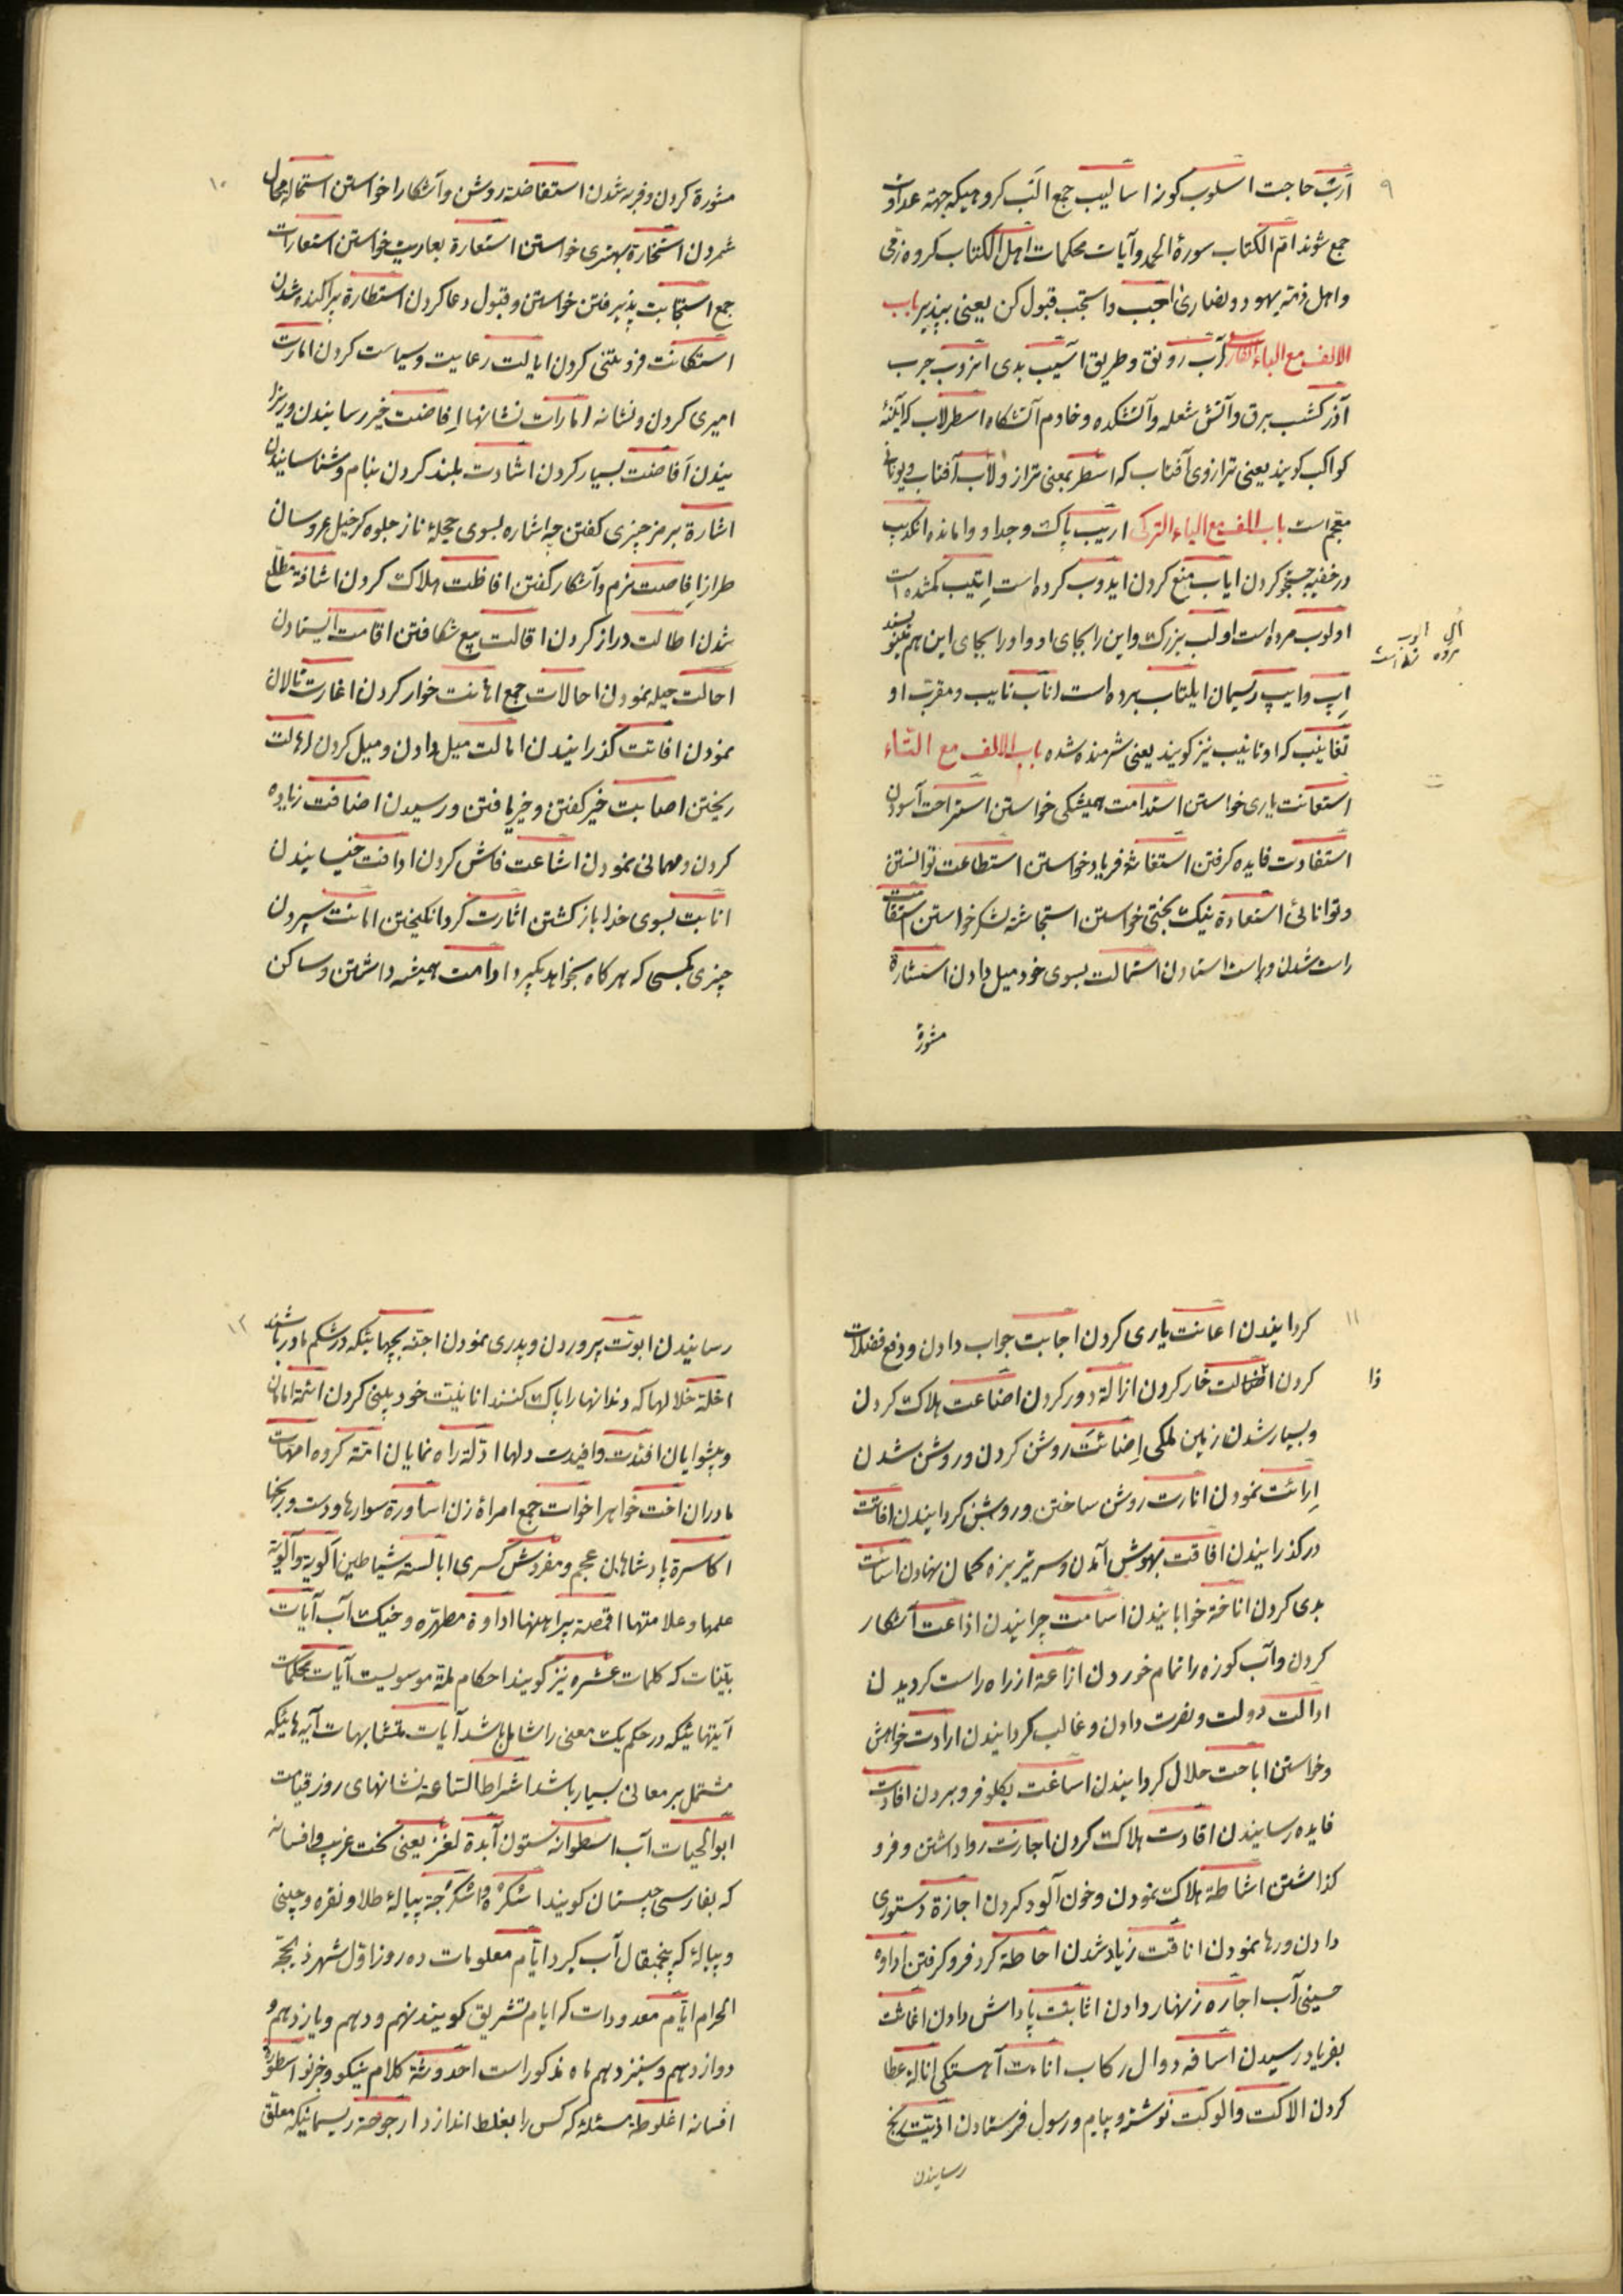 ۹
اَرَبْ حاجت اسلوب کونه اسالیب جمع اَلَب کروهیکه جهة عداوت
جمع شوند امّ الکتاب سورهٔ الحمد وآیات محکمات اهل الکتاب کروه زمّی
واهل ذمّه یهود ونضاری اجب واستجب قبول کن یعنی بپذیر باب
الالف مع الباء الفارسی آب رونق وطریق آسیب بدی انزوب جرب
آذر کشسب برق وآتش شعله وآتشکده وخادم آتشکاه اسطرلاب که آینهٔ
کواکب کویند یعنی ترازوی آفتاب که اسطر بمعنی ترازو ولاب آفتاب ویونانی
معجم است باب الالف مع الباء الترکی اریب پاک وجدا ووامانده انکدیب
در خفیه جستجو کردن ایاب منع کردن ایدوب کرده است ایتیب کمشده است
اولوب مرده است اولب بزرک واین را بجای او واو را بجای این هم مینویسند
ایب وایپ ریسمان ایلتاب برده است اناب نایب ومقرب او
تغاینب که اوتانیب نیز کویند یعنی شرمنده شده باب الالف مع التاء
استعانت یاری خواستن استدامت همیشکی خواستن استراحت آسودن
استفادت فایده کرفتن استغاثه فریاد خواستن استطاعت توانستن
وتوانائی استعادة نیک بختی خواستن استجاشه لشکر خواستن استقامت
راست شدن وراست استادن استمالت بسوی خود میل دادن استشارة
مشورة
۱۰
مشورة کردن وفربه شدن استفاضه روشن وآشکارا خواستن استحاله محال
شمردن استخارة بهتری خواستن استعارة بعاریت خواستن استعارات
جمع استجابت پذیرفتن خواستن وقبول دعا کردن استطارة پراکنده شدن
استکانت فروتنی کردن ایالت رعایت وسیاست کردن امارت
امیری کردن ونشانه امارات نشانها اِفاضت خیر رسانیدن وریزا
نیدن اَفاضت بسیار کردن اشادت بلند کردن بنام وشناسانیدن
اشارة برمز چیزی کفتن چه اشاره بسوی حجلهٔ ناز جلوه کر خیل عروسان
طراز اِفاصت نرم وآشکار کفتن افاظت هلاک کردن اشافة مطلع
شدن اطالت دراز کردن اقالت بیع شکافتن اقامت ایستادن
احالت حیله نمودن احالات جمع اهانت خوار کردن اغارت تالان
نمودن افاتت کذرانیدن امالت میل دادن ومیل کردن اهالت
ریختن اصابت خیر کفتن وخیر یافتن ورسیدن اضافت زیاده
کردن ومهمانی نمودن اشاعت فاش کردن ادافت خیسانیدن
انابت بسوی خدا باز کشتن اثارت کرد انکیختن امانت سپردن
چیزی بکسی که هرکاه بخواهد بکیرد ادامت همیشه داشتن وساکن
۱۱
کردانیدن اعانت یاری کردن اجابت جواب دادن ودفع فضلات
کردن اظالت خار کردن ازالة دور کردن اضاعت هلاک کردن
وبسیار شدن زمین ملکی اِضائت روشن کردن وروشن شدن
اِرائت نمودن انارت روشن ساختن وروشن کردانیدن افاتت
در کذرانیدن افاقت بهوش آمدن وسر تیر بزه کمان نهادن اسائت
بدی کردن اناخة خوابانیدن اسامت چرانیدن اذاعت آشکار
کردن وآب کوزه را تمام خوردن ازاعة از راه راست کردیدن
ادالت دولت ونصرت دادن وغالب کردانیدن ارادت خواهش
وخواستن اباحت حلال کردانیدن اساغت بکلو فرو بردن افادت
فایده رسانیدن اقادت هلاک کردن اجازت روا داشتن وفرو
کذاشتن اشاطة هلاک نمودن وخون آلود کردن اجازة دستوری
دادن ورها نمودن انافت زیاد شدن احاطة کرد فرو کرفتن اداوه
حسینی آب اجاره زنهار دادن اثابت پاداش دادن اغاثت
بفریاد رسیدن اسافه دوال رکاب اناءت آهستکی انالة عطا
کردن الاکت والوکت نوشته وپیام ورسول فرستادن اذیّت رنج
رسانیدن
۱۲
رسانیدن ابوّت پروردن وپدری نمودن اجنّه بچهائیکه در شکم مادر باشند
اخلّة خلالها که دندانها را پاک کنند انانیّت خود بینی کردن ائمّة امامان
وپیشوایان افئدت وافیدت دلها ادلّة راه نمایان امّة کروه امهات
مادران اخت خواهر اخوات جمع امراة زن اساورة سوارها ودست ورنجها
اکاسرة پادشاهان عجم ومفردش کسری ابالسة شیاطین الویة وآلویة
علمها وعلامتها اقمصة پیراهنها اداوة مطهّره وخیک آب آیات
بیّنات که کلمات عشره نیز کویند احکام ملّة موسویست آیات محکمات
آیتهائیکه در حکم یک معنی را شامل باشد آیات متشابهات آیه هائیکه
مشتمل بر معانی بسیار باشد اشراط السّاعة نشانهای روز قیامت
ابوالحیات آب اسطوانه ستون آبدة لغز یعنی سخت غریب وافسانه
که بفارسی چیستان کویند اشکرّه واشکرّجة پیالهٔ طلا ونقره وچینی
وپیالهٔ که پنجمثقال آب کیرد ایّام معلومات ده روز اوّل شهر ذیحجّة
الحرام ایّام معدودات که ایام تشریق کویند نهم ودهم ویازدهم و
دوازدهم وسیزدهم ماه مذکور است احدوثة کلام نیکو وخبر نو اسطوره
افسانه اغلوطة مسئلهٔ که کس را بغلط اندازد ارجوحة ریسمانیکه معلق